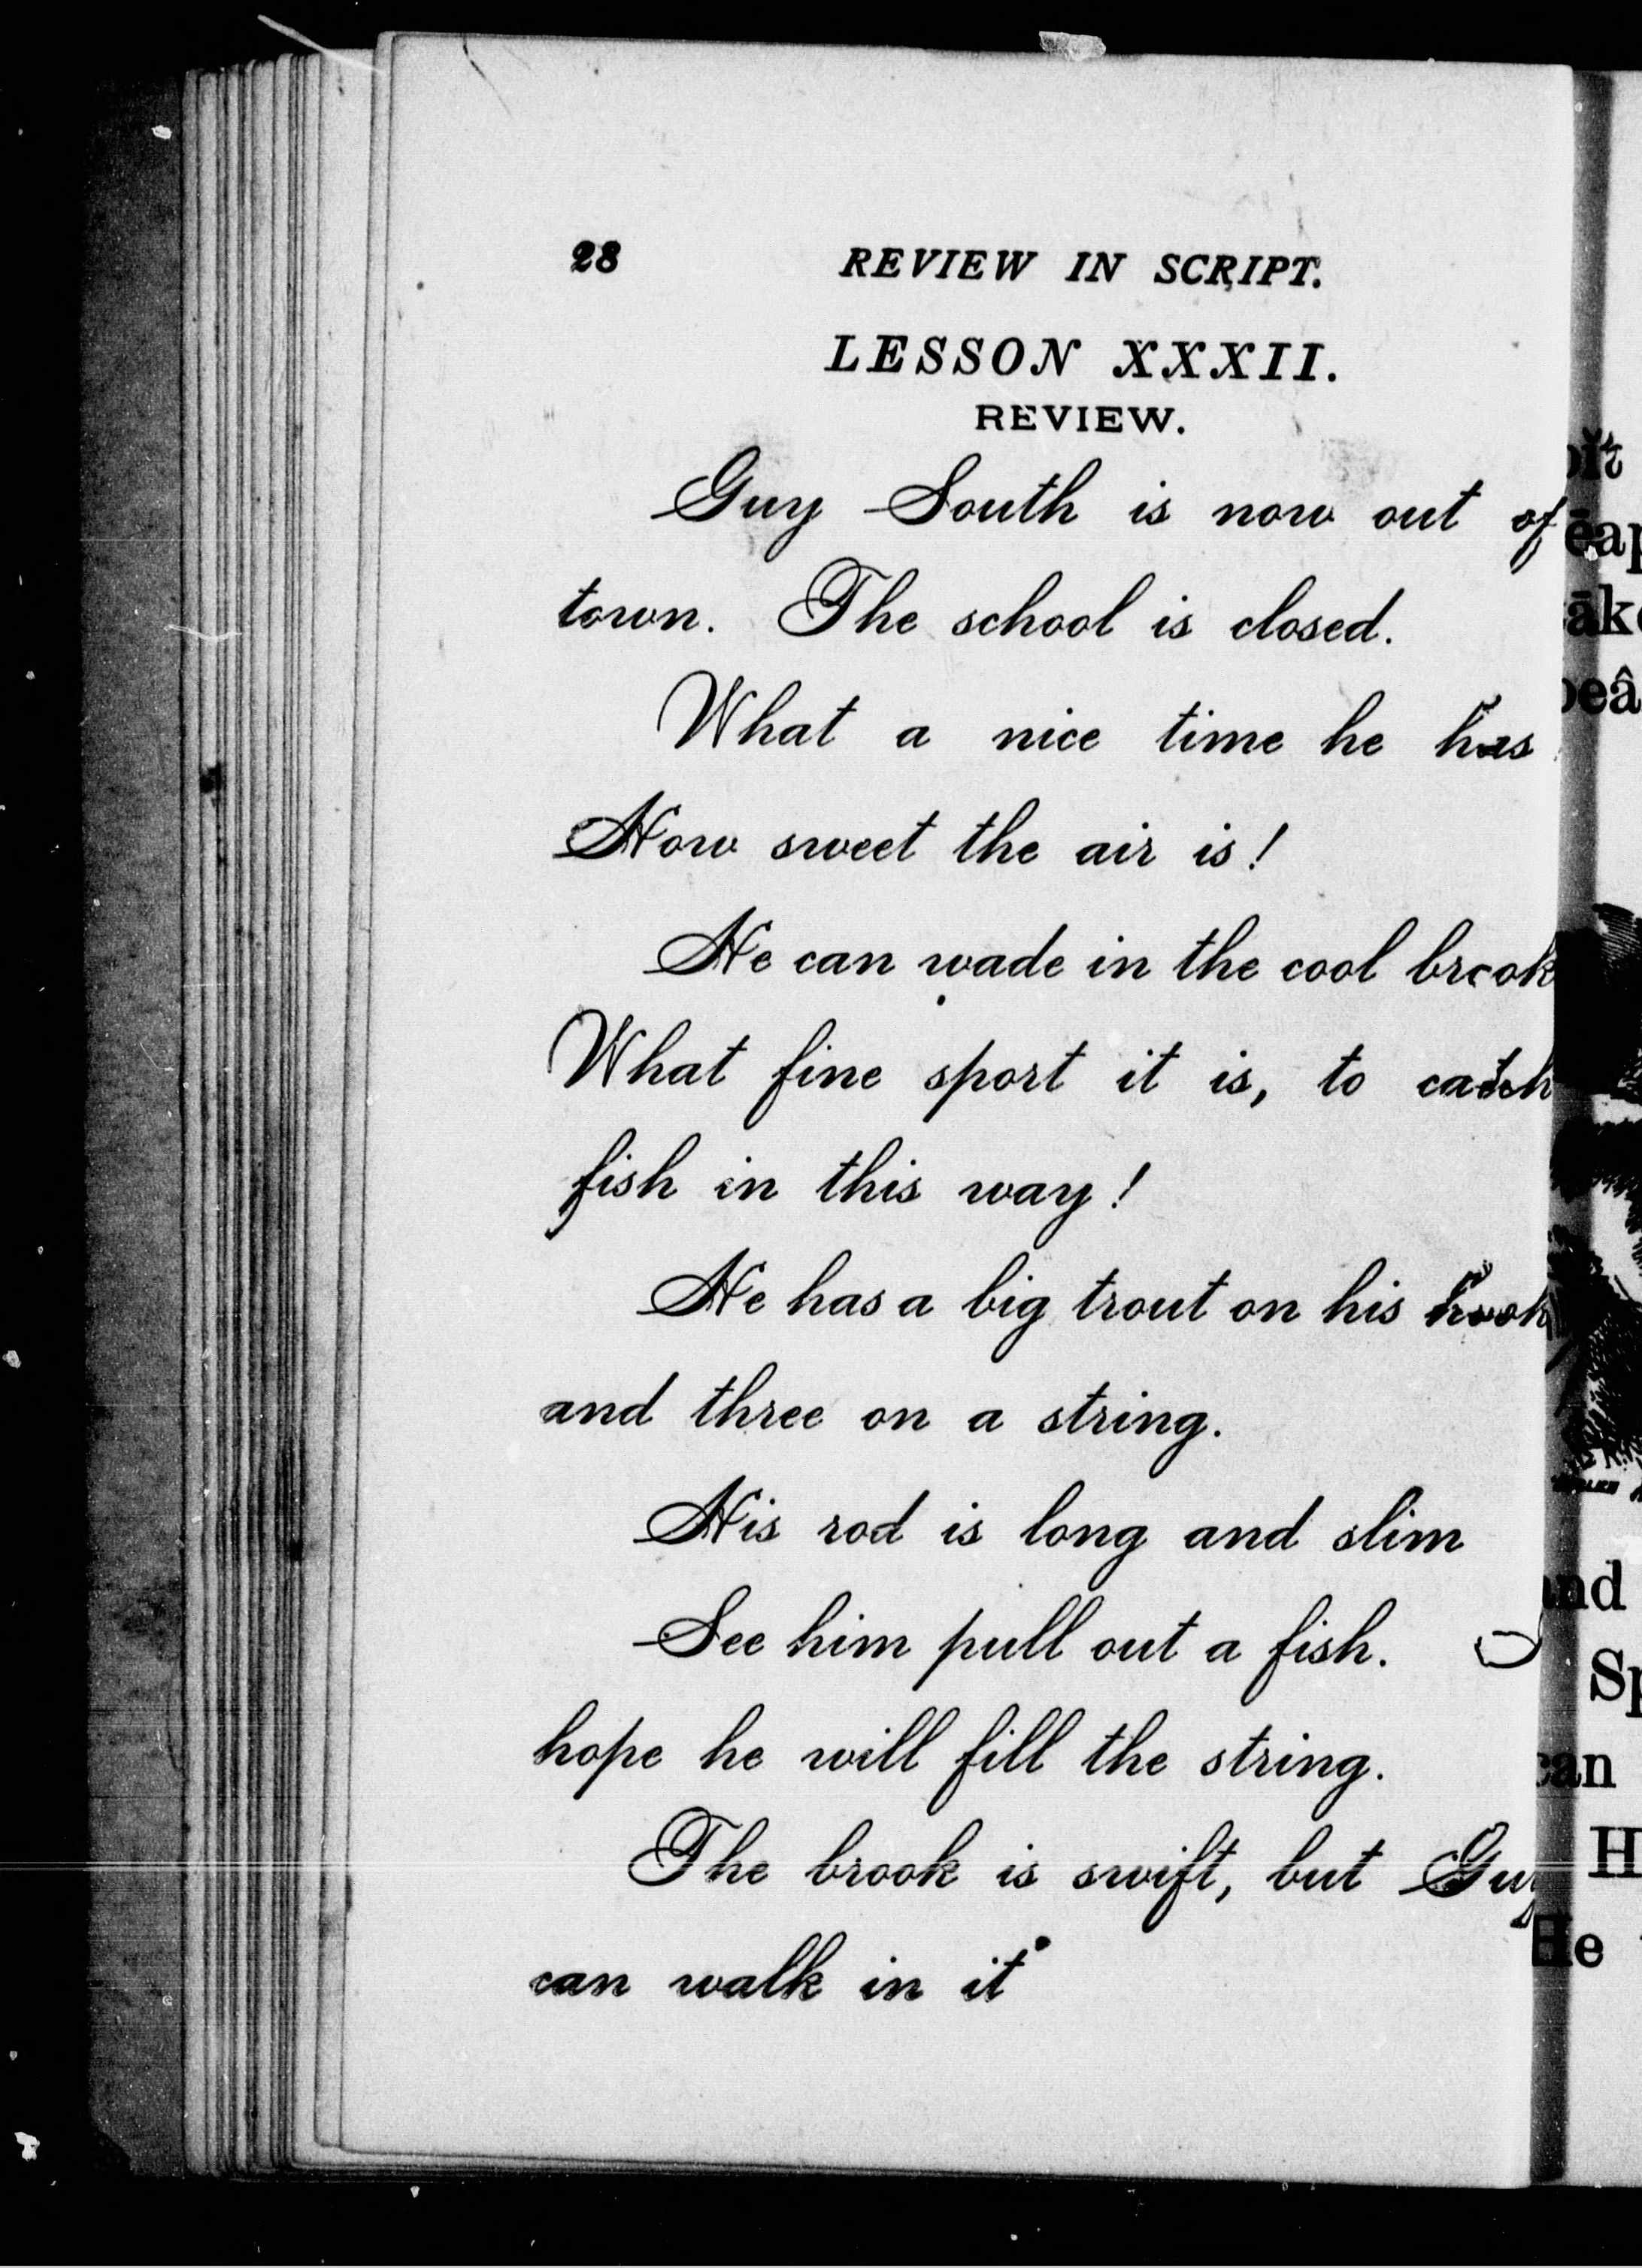 28 REVIEW IN SCRIPT.
LESSON XXXII.
REVIEW.
Guy South is now out of
town. The school is closed.
What a nice time he has
How sweet the air is!
He can wade in the cool brook
What fine sport it is, to catch
fish in this way!
He has a big trout on his hook
and three on a string.
His rod is long and slim
See him pull out a fish.
hope he will fill the string.
The brook is swift, but Guy
can walk in it.
and
Sp
can
H
He